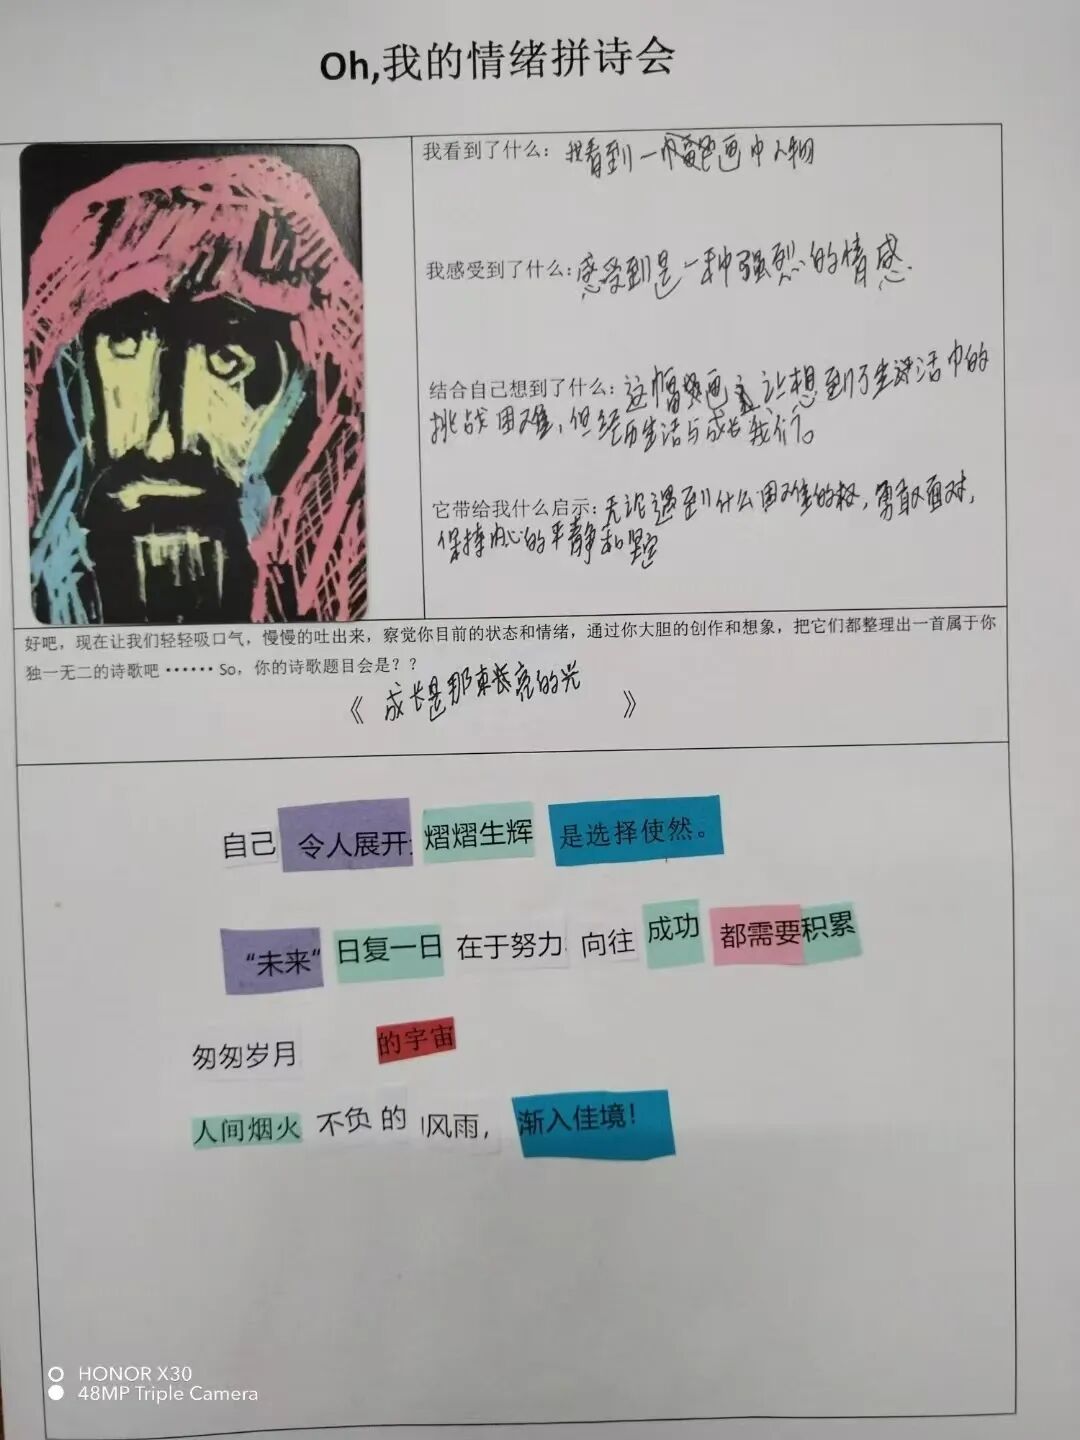 Oh,我的情绪拼诗会
我看到了什么：我看到一幅 画中人物
我感受到了什么:感受到是一种强烈的情感
结合自己想到了什么：这幅 画 让想到了生活中的
挑战困难，但经历生活与成长我们。
它带给我什么启示:无论遇到什么困难的 ，勇敢面对，
保持内心的平静和坚定
好吧，现在让我们轻轻吸口气，慢慢的吐出来，察觉你目前的状态和情绪，通过你大胆的创作和想象，把它们都整理出一首属于你
独一无二的诗歌吧 •••••• So，你的诗歌题目会是？？
《 成长是那束 亮的光 》
自己 令人展开 熠熠生辉 是选择使然。
“未来” 日复一日 在于努力 向往 成功 都需要积累
匆匆岁月 的宇宙
人间烟火 不负 的 风雨， 渐入佳境！
HONOR X30
48MP Triple Camera